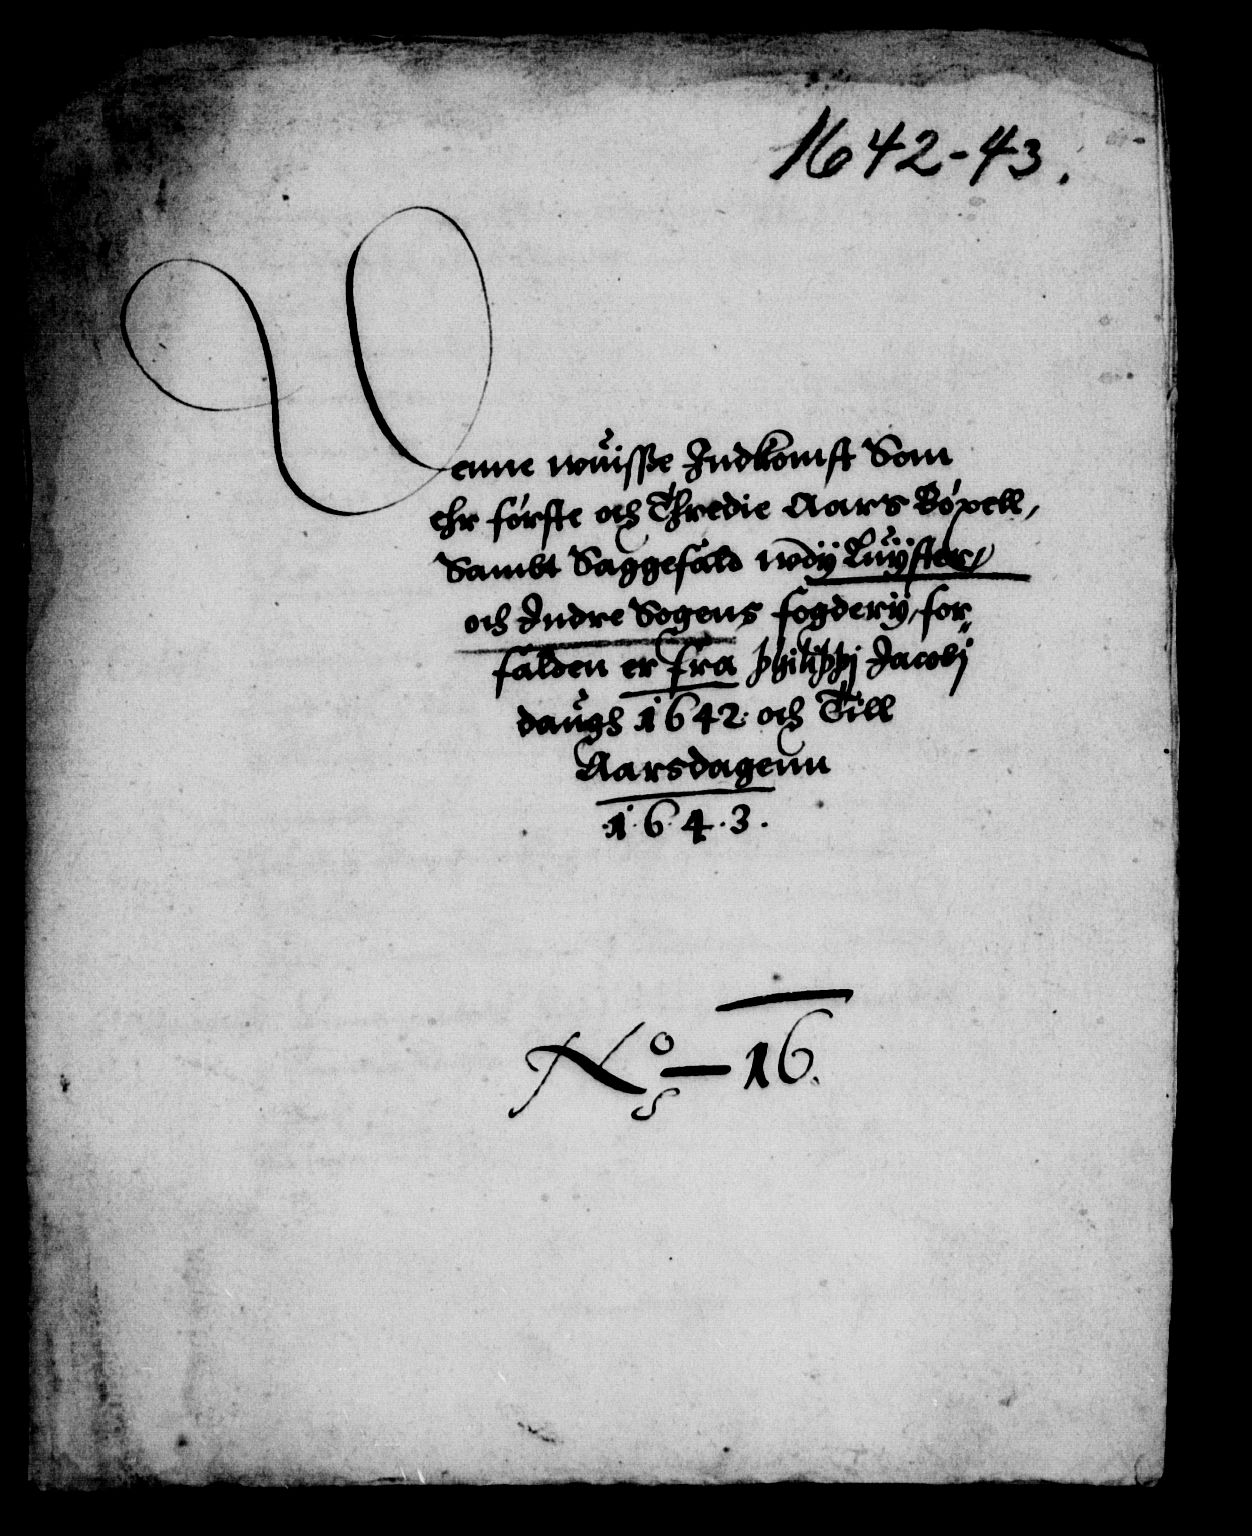 1642-43.
Denne wuisse Indkomst Som
ehr förste och Thredie Aars Böxell,
Sambt Saggefald wdÿ Luÿster,
och Indre Sogens fogderÿ, for
falden er fra Philippi Jacobi
daugh 1642. och Till
Aarsdagenn
.1.6.4.3.
No 16.